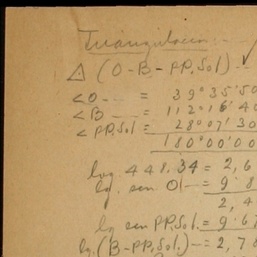 Triangulacion
Δ (O-B-PP.Sol)
<O --- = 39°35'50
<B --- = 112°16'40
<PP.Sol = 28°07'30
180°00'00
log. 448.34 = 2,6
lg. sen O --- = 9.8
2,4
lg sen PP.Sol = 9.67
lg. (B-PP.Sol) --- = 2,78